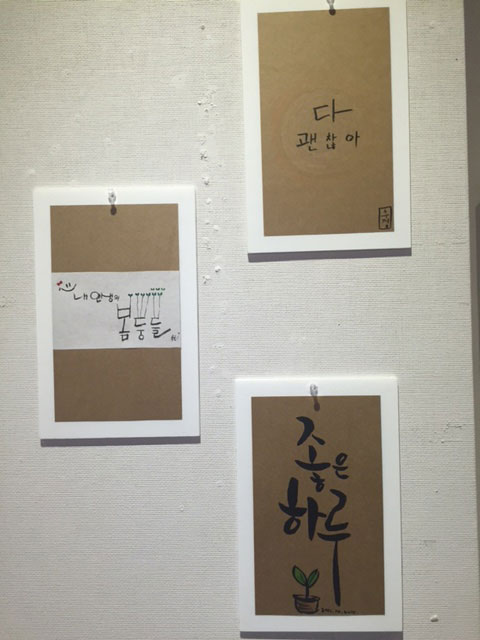 다
괜찮아
내 인생의
봄둥들
좋은
하루